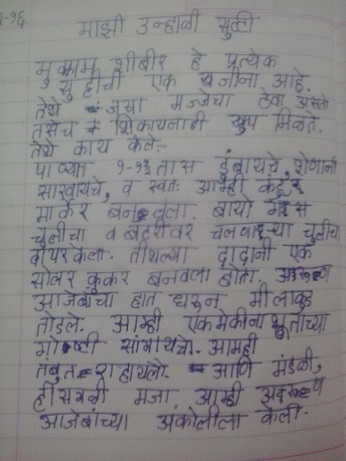 माझी उन्हाळी सुट्टी
मुक्काम शीबीर हे प्रत्येक
सुट्टीची एक खजीना आहे.
तेथे जशा मज्जेचा ठेवा असतो
तसेच शिकायलाही खुप मिळते.
तेथे काय केले:-
पाण्यात १-१½ तास डुंबायचे, शेणानी
सारवायचे, व स्वतः आम्ही कंदुर
मार्कर बनवला. बायो गॅस
चुलीचा व बॅटरीवर चालवाऱ्या चुलीचा
वापर केला. तीथल्या दादानी एक
सोलर कुकर बनवला होता.
आजेबांचा हात धरून मीलावुड
तोडले. आम्ही एकमेकीना भूताच्या
गोष्टी सांगीतल्या. आम्ही
तंबुत राहायलो. आणि मंडळी,
ही सगळी मजा, आम्ही
आजेबांच्या अंकोलीला केली.